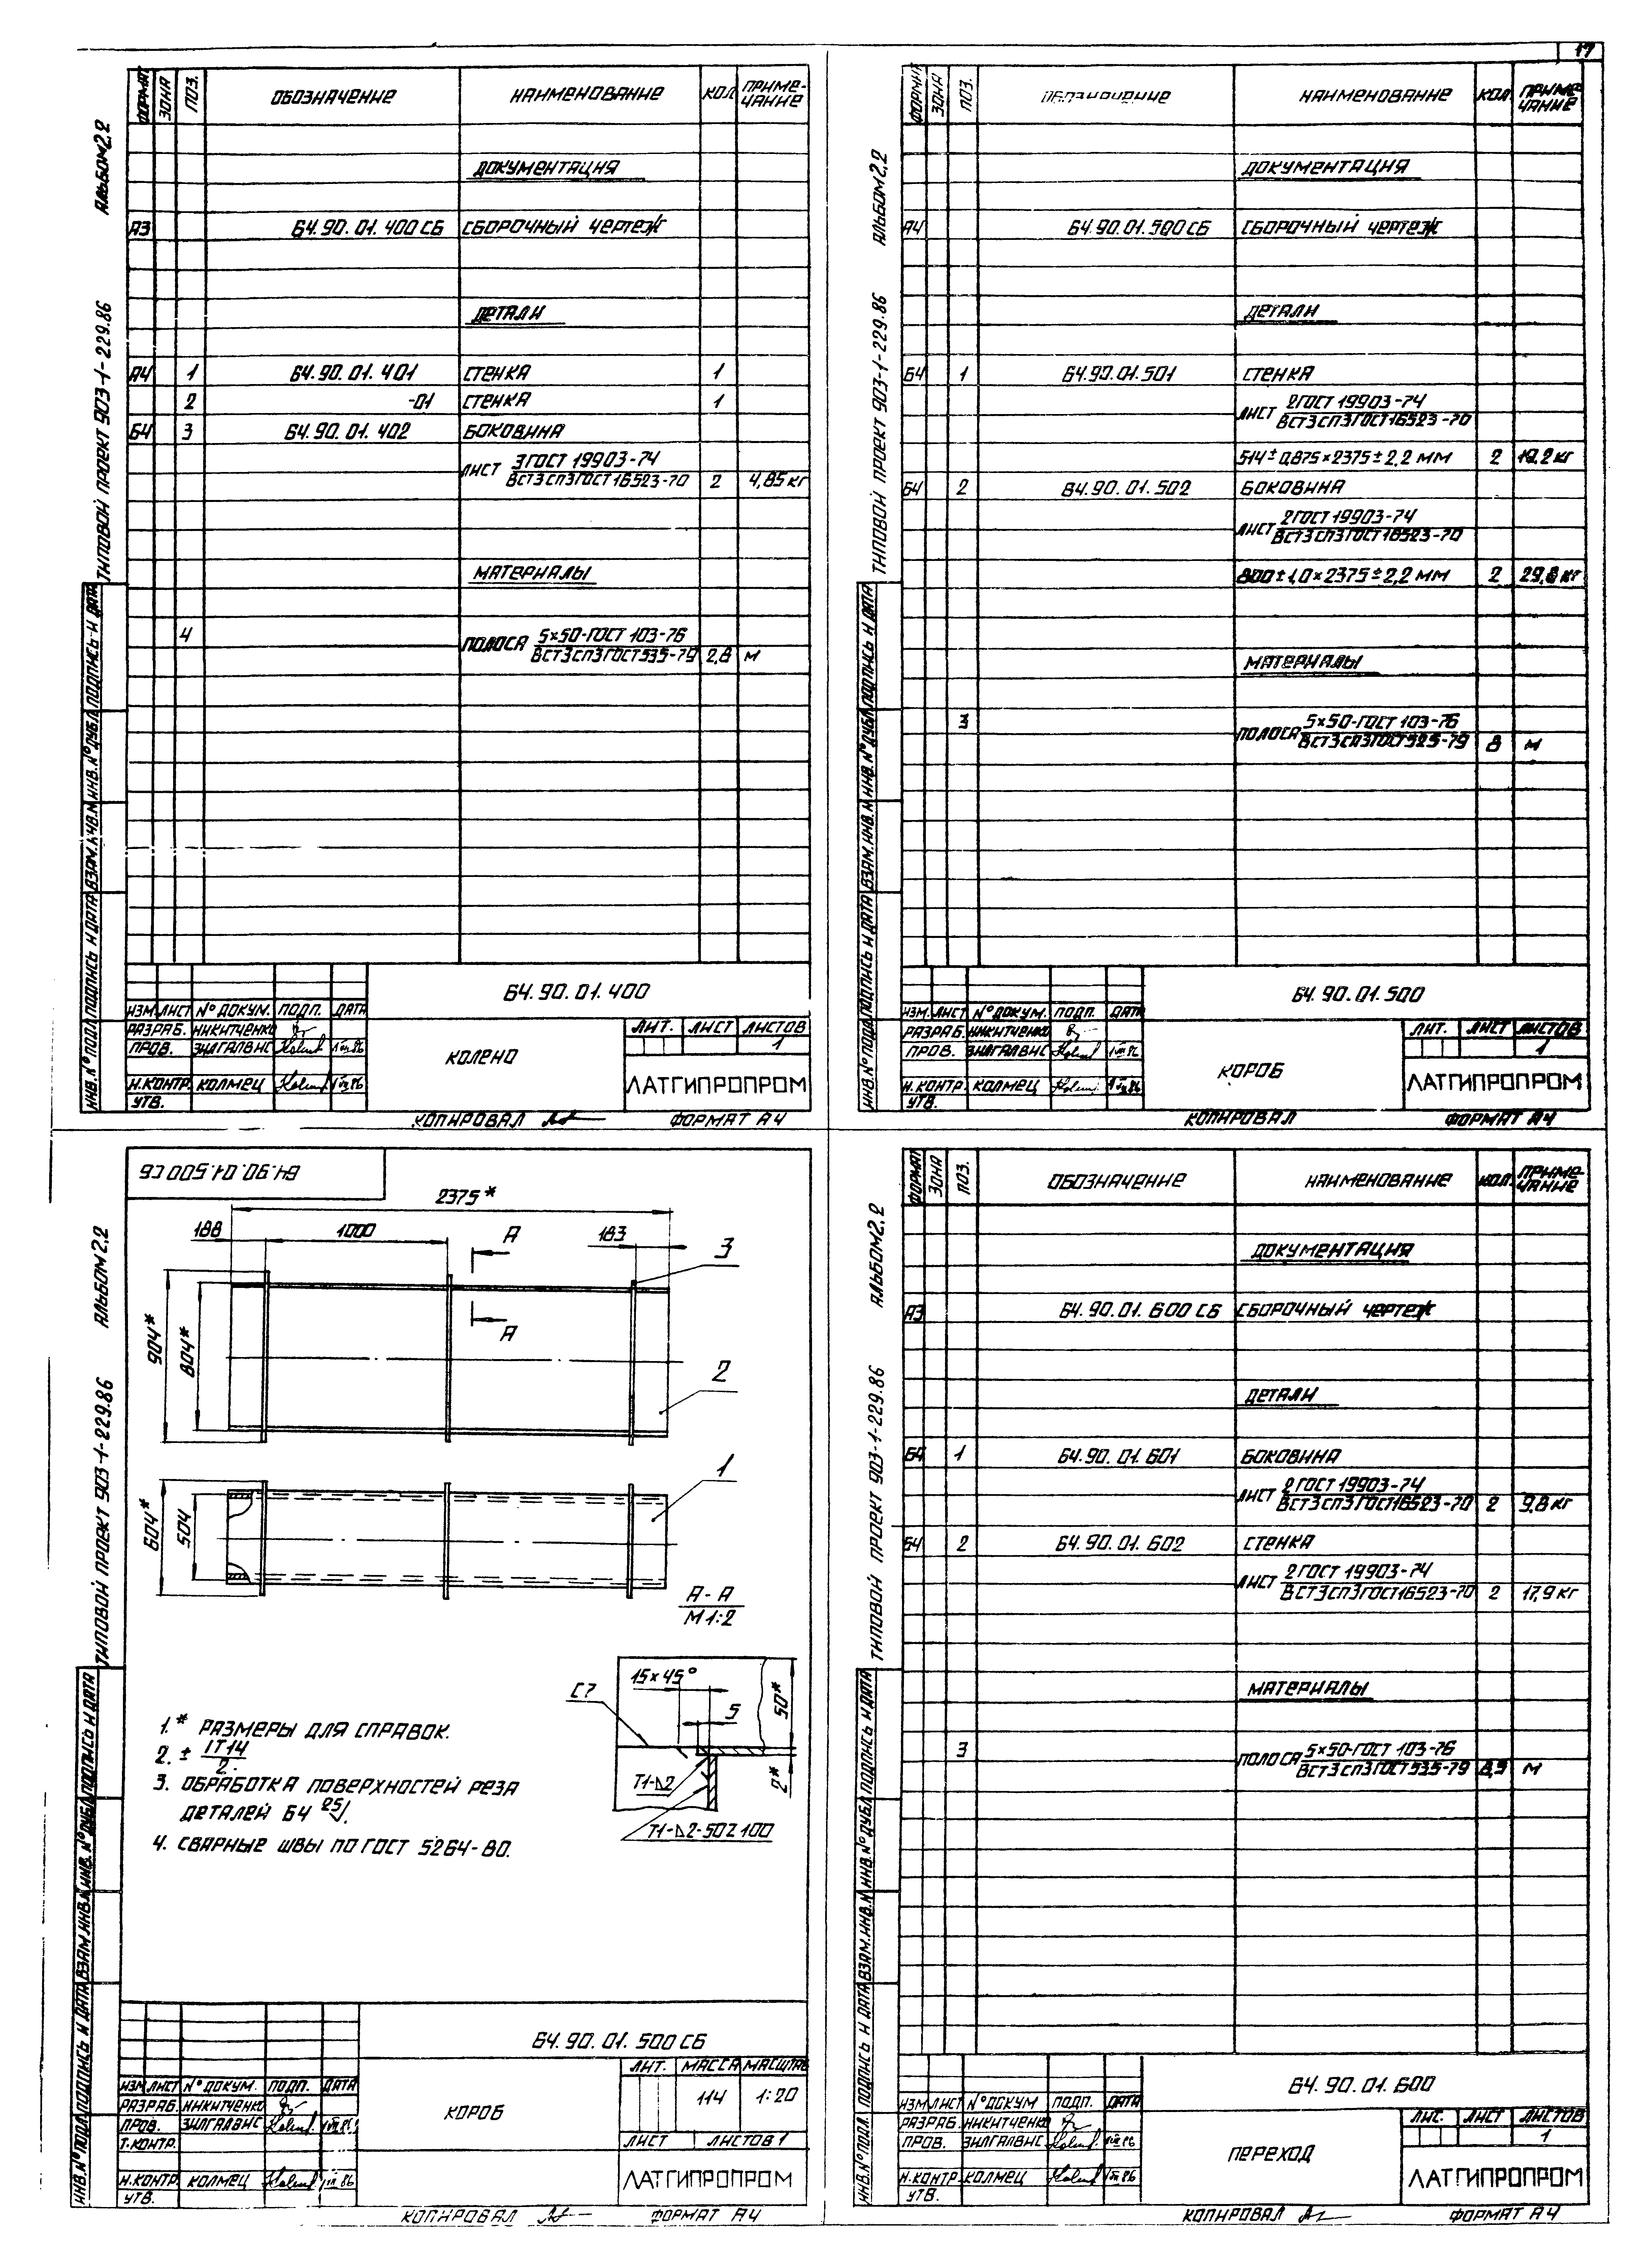 17
АЛЬБОМ 2.2
ТИПОВОЙ ПРОЕКТ 903-1-229.86
ФОРМАТ ЗОНА ПОЗ. ОБОЗНАЧЕНИЕ НАИМЕНОВАНИЕ КОЛ ПРИМЕ-ЧАНИЕ
ДОКУМЕНТАЦИЯ
А3 Б4.90.01.400 СБ СБОРОЧНЫЙ ЧЕРТЕЖ
ДЕТАЛИ
А4 1 Б4.90.01.401 СТЕНКА 1
2 -01 СТЕНКА 1
Б4 3 Б4.90.01.402 БОКОВИНА
ЛИСТ 3 ГОСТ 19903-74
ВСт3сп3 ГОСТ 16523-70 2 4,85 кг
МАТЕРИАЛЫ
4 ПОЛОСА 5×50-ГОСТ 103-76
ВСт3сп3 ГОСТ 535-79 2,8 м
ИНВ. № ПОДЛ ПОДПИСЬ И ДАТА ВЗАМ. ИНВ. № ИНВ. № ДУБЛ ПОДПИСЬ И ДАТА
Б4.90.01.400
ИЗМ ЛИСТ № ДОКУМ. ПОДП. ДАТА
РАЗРАБ. НИКИТЧЕНКО
ПРОВ. ЗИЛГАЛВИС
Н.КОНТР. КОЛМЕЦ
УТВ.
КОЛЕНО
ЛИТ. ЛИСТ ЛИСТОВ
1
ЛАТГИПРОПРОМ
КОПИРОВАЛ ФОРМАТ А4
АЛЬБОМ 2.2
ТИПОВОЙ ПРОЕКТ 903-1-229.86
ФОРМАТ ЗОНА ПОЗ. ОБОЗНАЧЕНИЕ НАИМЕНОВАНИЕ КОЛ. ПРИМЕ-ЧАНИЕ
ДОКУМЕНТАЦИЯ
А4 Б4.90.01.500 СБ СБОРОЧНЫЙ ЧЕРТЕЖ
ДЕТАЛИ
Б4 1 Б4.90.01.501 СТЕНКА
ЛИСТ 2 ГОСТ 19903-74
ВСт3сп3 ГОСТ 16523-70
514±0,875×2375±2,2 ММ 2 19.2 кг
Б4 2 Б4.90.01.502 БОКОВИНА
ЛИСТ 2 ГОСТ 19903-74
ВСт3сп3 ГОСТ 16523-70
800±1,0×2375±2,2 ММ 2 29,8 кг
МАТЕРИАЛЫ
3 ПОЛОСА 5×50-ГОСТ 103-76
ВСт3сп3 ГОСТ 535-79 8 м
ИНВ. № ПОДЛ ПОДПИСЬ И ДАТА ВЗАМ. ИНВ. № ИНВ. № ДУБЛ ПОДПИСЬ И ДАТА
Б4.90.01.500
ИЗМ. ЛИСТ № ДОКУМ. ПОДП. ДАТА
РАЗРАБ. НИКИТЧЕНКО
ПРОВ. ЗИЛГАЛВИС
Н.КОНТР. КОЛМЕЦ
УТВ.
КОРОБ
ЛИТ. ЛИСТ ЛИСТОВ
1
ЛАТГИПРОПРОМ
КОПИРОВАЛ ФОРМАТ А4
АЛЬБОМ 2.2
ТИПОВОЙ ПРОЕКТ 903-1-229.86
Б4.90.01.500 СБ
2375*
188 1000 А 183 3
904* 804*
А
2
604* 504 1
А-А
М 1:2
15×45°
С7 5 50*
Т1-⊿2 2*
Т1-⊿2-50Z100
1.* РАЗМЕРЫ ДЛЯ СПРАВОК.
2. ± IT14
2.
3. ОБРАБОТКА ПОВЕРХНОСТЕЙ РЕЗА
ДЕТАЛЕЙ БЧ 25√.
4. СВАРНЫЕ ШВЫ ПО ГОСТ 5264-80.
ИНВ. № ПОДЛ. ПОДПИСЬ И ДАТА ВЗАМ. ИНВ. № ИНВ. № ДУБЛ ПОДПИСЬ И ДАТА
Б4.90.01.500 СБ
ИЗМ ЛИСТ № ДОКУМ. ПОДП. ДАТА
РАЗРАБ. НИКИТЧЕНКО
ПРОВ. ЗИЛГАЛВИС
Т.КОНТР.
Н.КОНТР. КОЛМЕЦ
УТВ.
КОРОБ
ЛИТ. МАССА МАСШТАБ
114 1:20
ЛИСТ ЛИСТОВ 1
ЛАТГИПРОПРОМ
КОПИРОВАЛ ФОРМАТ А4
АЛЬБОМ 2.2
ТИПОВОЙ ПРОЕКТ 903-1-229.86
ФОРМАТ ЗОНА ПОЗ. ОБОЗНАЧЕНИЕ НАИМЕНОВАНИЕ КОЛ. ПРИМЕ-ЧАНИЕ
ДОКУМЕНТАЦИЯ
А3 Б4.90.01.600 СБ СБОРОЧНЫЙ ЧЕРТЕЖ
ДЕТАЛИ
Б4 1 Б4.90.01.601 БОКОВИНА
ЛИСТ 2 ГОСТ 19903-74
ВСт3сп3 ГОСТ 16523-70 2 9,8 кг
Б4 2 Б4.90.01.602 СТЕНКА
ЛИСТ 2 ГОСТ 19903-74
ВСт3сп3 ГОСТ 16523-70 2 17,9 кг
МАТЕРИАЛЫ
3 ПОЛОСА 5×50-ГОСТ 103-76
ВСт3сп3 ГОСТ 535-79 м
ИНВ. № ПОДЛ. ПОДПИСЬ И ДАТА ВЗАМ. ИНВ. № ИНВ. № ДУБЛ ПОДПИСЬ И ДАТА
Б4.90.01.600
ИЗМ ЛИСТ № ДОКУМ ПОДП. ДАТА
РАЗРАБ. НИКИТЧЕНКО
ПРОВ. ЗИЛГАЛВИС
Н.КОНТР. КОЛМЕЦ
УТВ.
ПЕРЕХОД
ЛИТ. ЛИСТ ЛИСТОВ
1
ЛАТГИПРОПРОМ
КОПИРОВАЛ ФОРМАТ А4